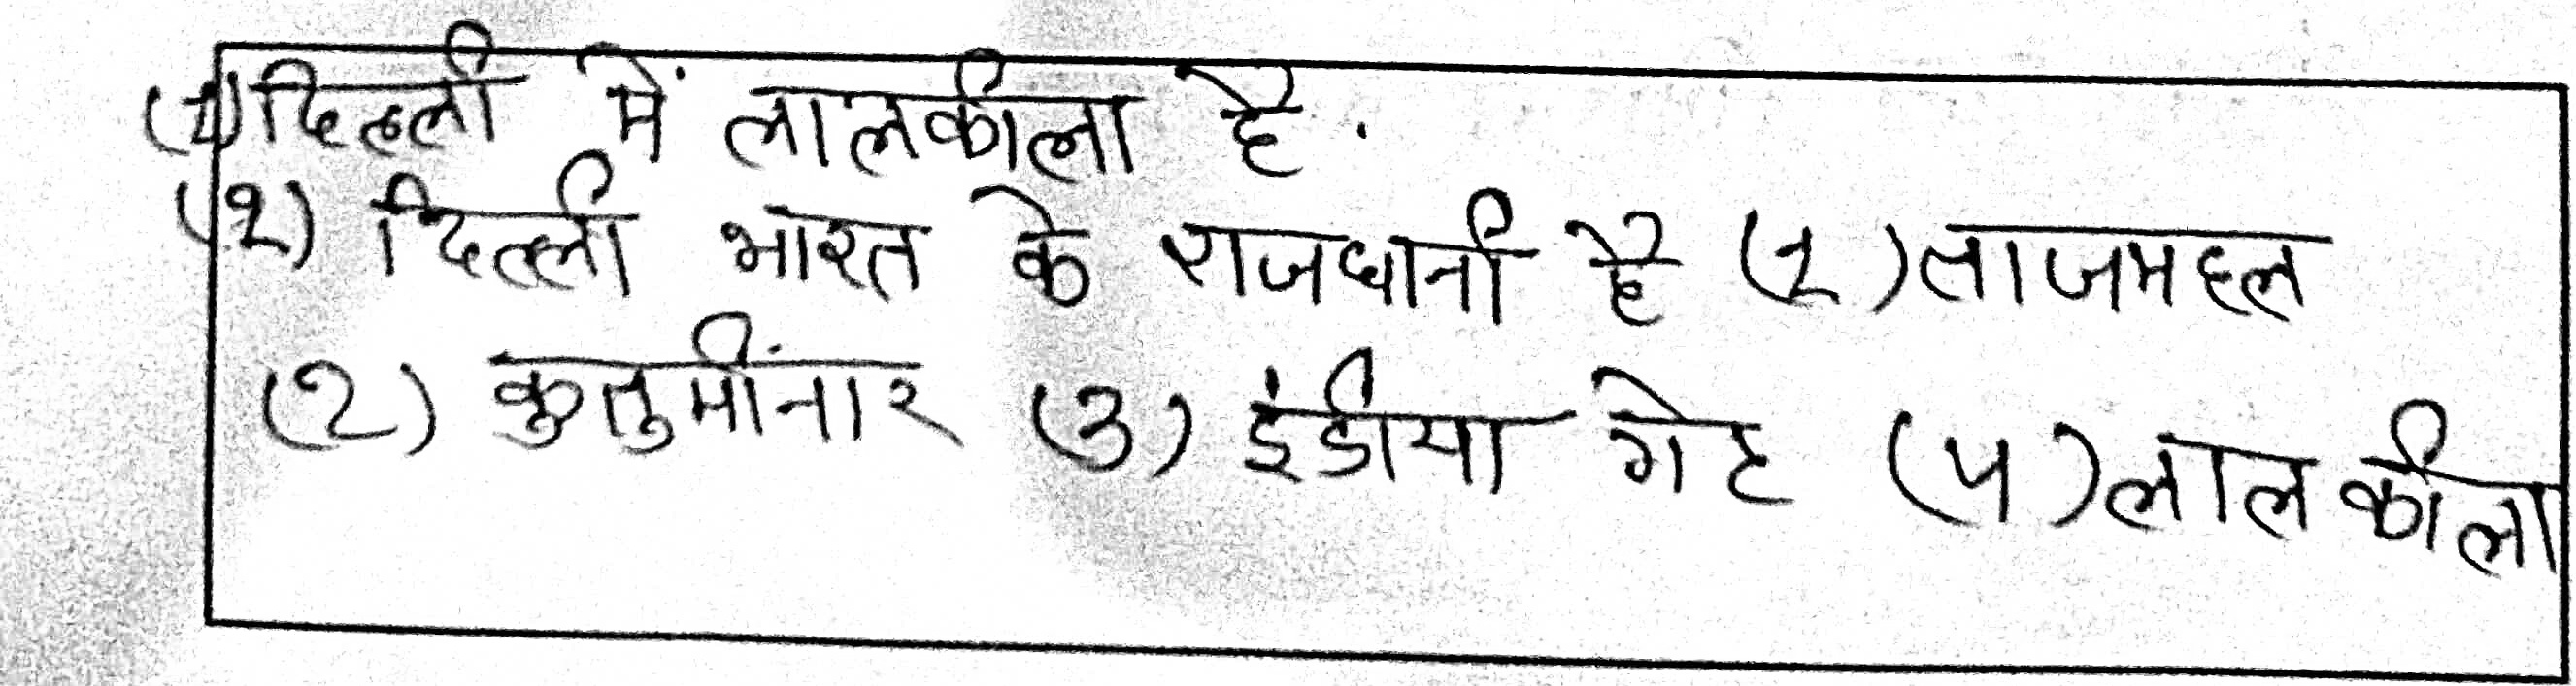 (1) दिल्ली में लालकीला है.
(२) दिल्ली भारत के राजधानी है (1) ताजमहल
(2) कुतुमींनार (3) इंडीया गेट (4) लाल कीला